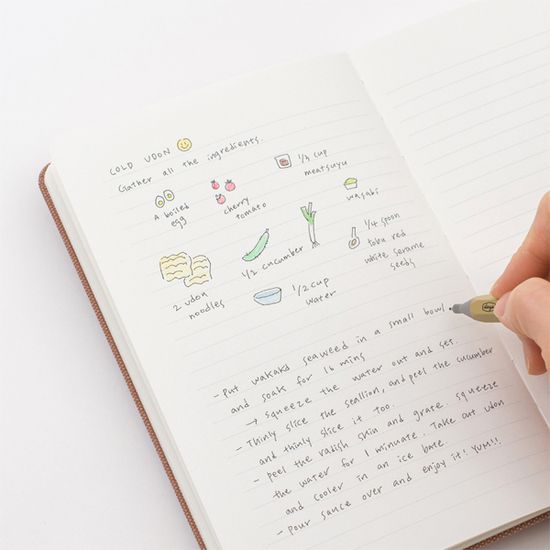 COLD UDON
Gather all the ingredients.
1/4 cup
meatsuyu
A boiled
egg
cherry
tomato
wasabi
1/2 cucumber
1/4 spoon
tobu red
white serame
seeds
2 udon
noodles
1/2 cup
water
- Put wakaka seaweed in a small bowl,
and soak for 16 mins
→ squeeze the water out and set.
- Thinly slice the seallion, and peel the cucumber
and thinly slice it too.
- peel the radish skin and grate. squeeze
the water for 1 minuate.. Take out udon
and cooler in an ice bate.
- pour sauce over and enjoy it! YUM!!